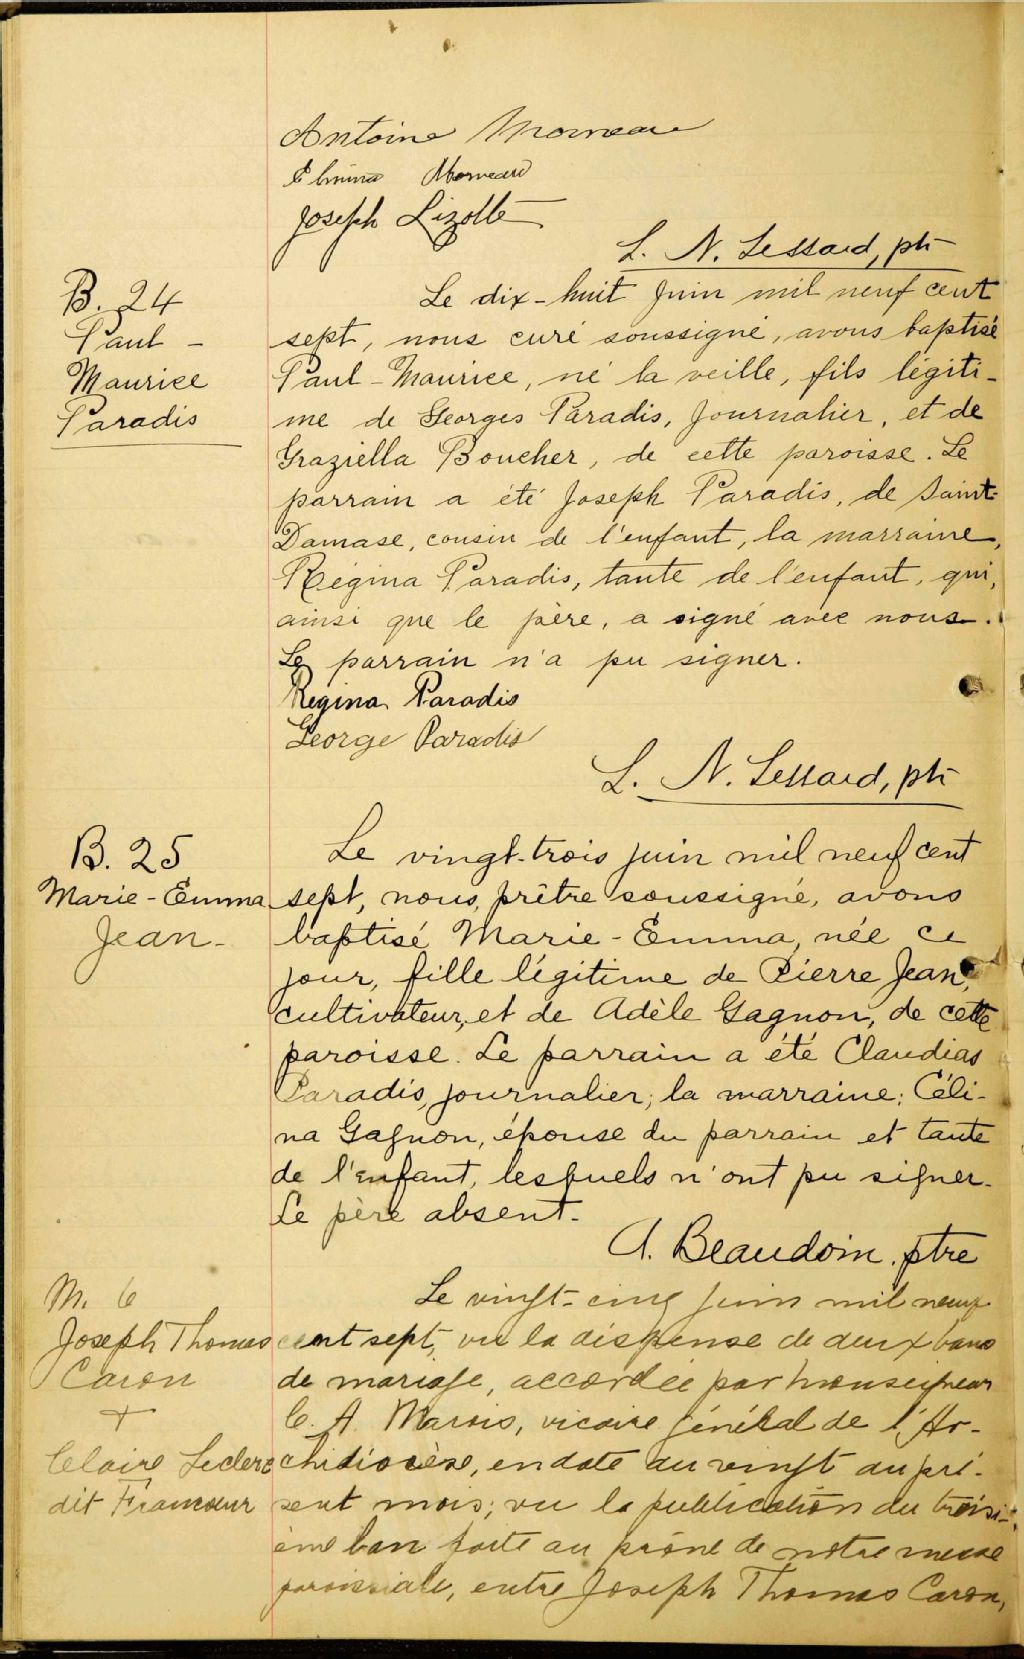 Antoine Morneau
Elmina Morneau
Joseph Lizotte
L. N. Lessard, ptr
B. 24
Paul -
Maurice
Paradis
Le dix-huit juin mil neuf cent
sept, nous curé soussigné, avons baptisé
Paul-Maurice, né la veille, fils légiti-
me de Georges Paradis, journalier, et de
Graziella Boucher, de cette paroisse. Le
parrain a été Joseph Paradis, de Saint-
Damase, cousin de l'enfant, la marraine,
Régina Paradis, tante de l'enfant, qui,
ainsi que le père, a signé avec nous.
Le parrain n'a pu signer.
Regina Paradis
George Paradis
L. N. Lessard, ptr
B. 25
Marie-Emma
Jean-
Le vingt-trois juin mil neuf cent
sept, nous, prêtre soussigné, avons
baptisé Marie-Emma, née ce
jour, fille légitime de Pierre Jean,
cultivateur, et de Adèle Gagnon, de cette
paroisse. Le parrain a été Claudias
Paradis, journalier; la marraine: Céli-
na Gagnon, épouse du parrain et tante
de l'enfant, lesquels n'ont pu signer.
Le père absent.
A. Beaudoin, ptre
M. 6
Joseph Thomas
Caron
+
Claire Leclerc
dit Francœur
Le vingt-cinq juin mil neuf
cent sept, vu la dispense de deux bans
de mariage, accordée par Monseigneur
C. A. Marois, vicaire général de l'Ar-
chidiocèse, en date du vingt du pré-
sent mois; vu la publication du troisi-
ème ban faite au prône de notre messe
paroissiale, entre Joseph Thomas Caron,